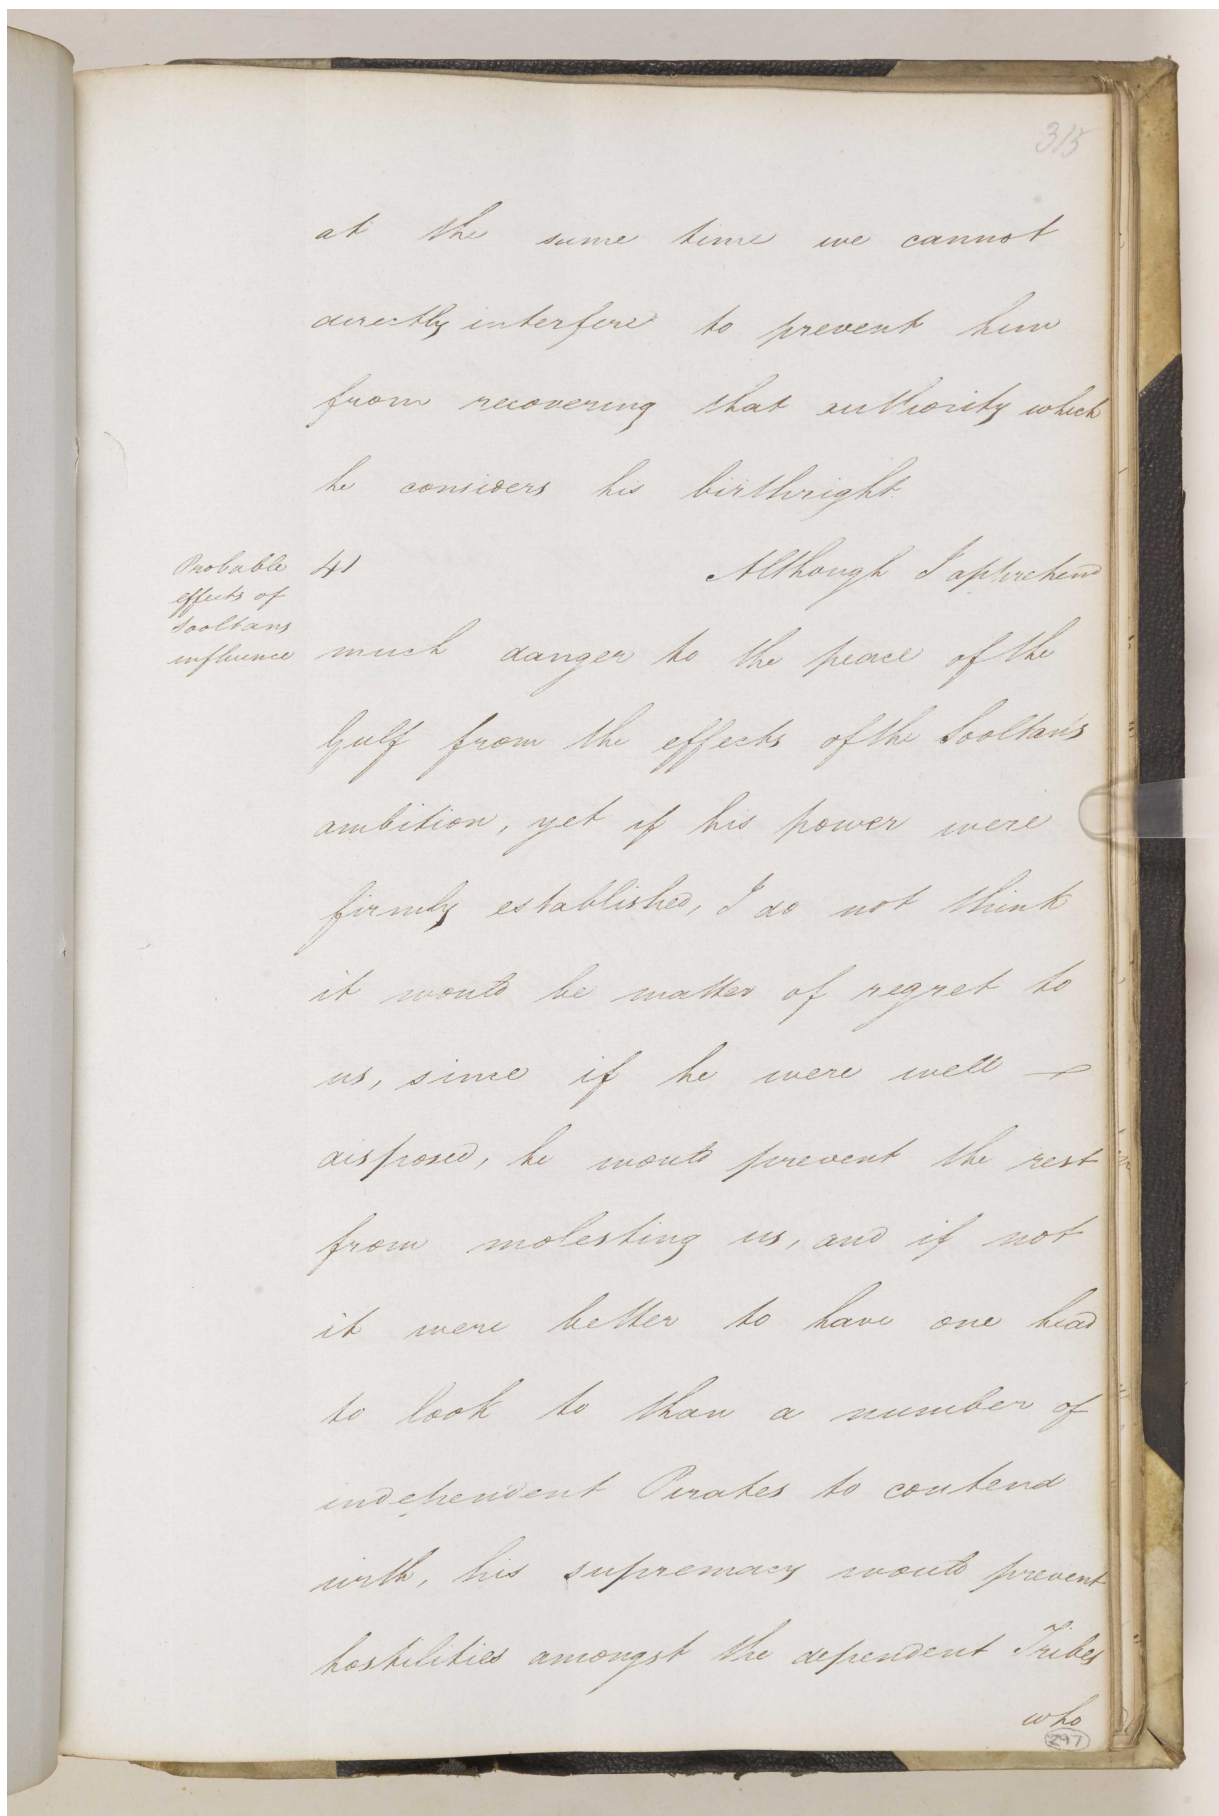 315
at the same time we cannot
directly interfere to prevent him
from recovering that authority which
he considers his birthright
Probable
effects of
Sooltans
influence
41 Although I apprehend
much danger to the peace of the
Gulf from the effects of the Sooltan's
ambition, yet if his power were
firmly established, I do not think
it would be matter of regret to
us, since if he were well –
disposed, he would prevent the rest
from molesting us, and if not
it were better to have one head
to look to than a number of
independent Pirates to contend
with, his supremacy would prevent
hostilities amongst the dependent Tribes
who
297